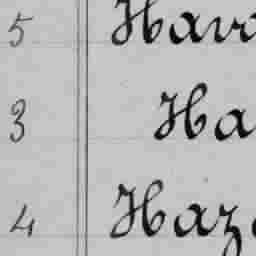 5 Hava
3 Ha
4 Haz